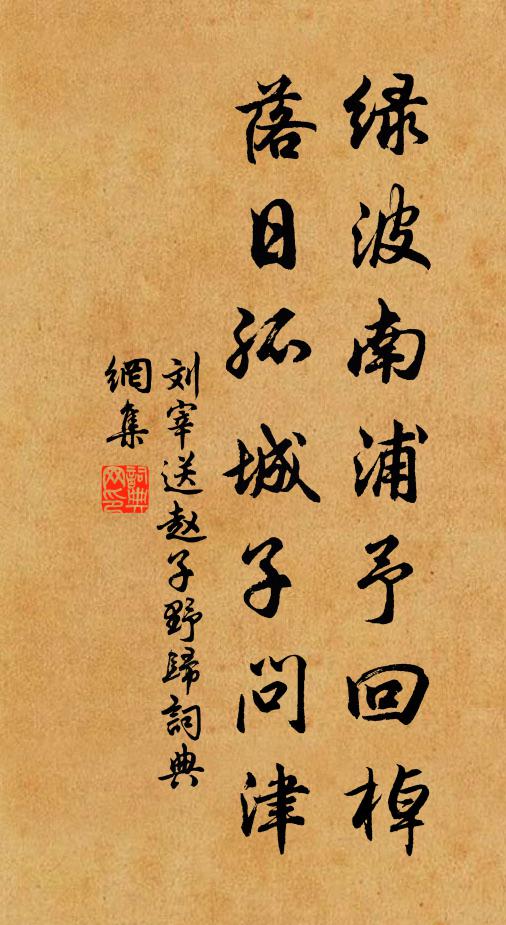 绿波南浦予回棹
落日孤城子问津
刘宰送赵子野歸詞典
網集
詞典
网印